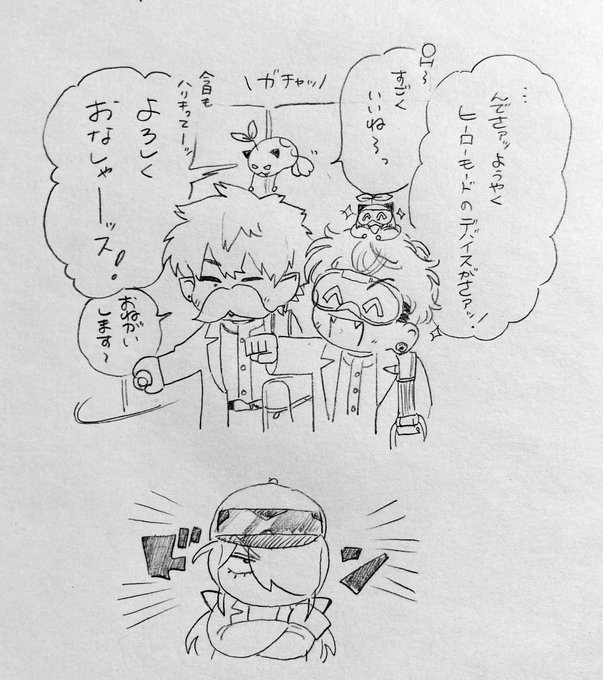 …
んでさァッようやく
ヒーローモードのデバイスがさァッ!
OH〜
すごく
いいね〜っ
\ガチャッ/
今日も
ハリキってーッ
よろしく
おなしゃーッス!
おねがい
します〜
ドーン